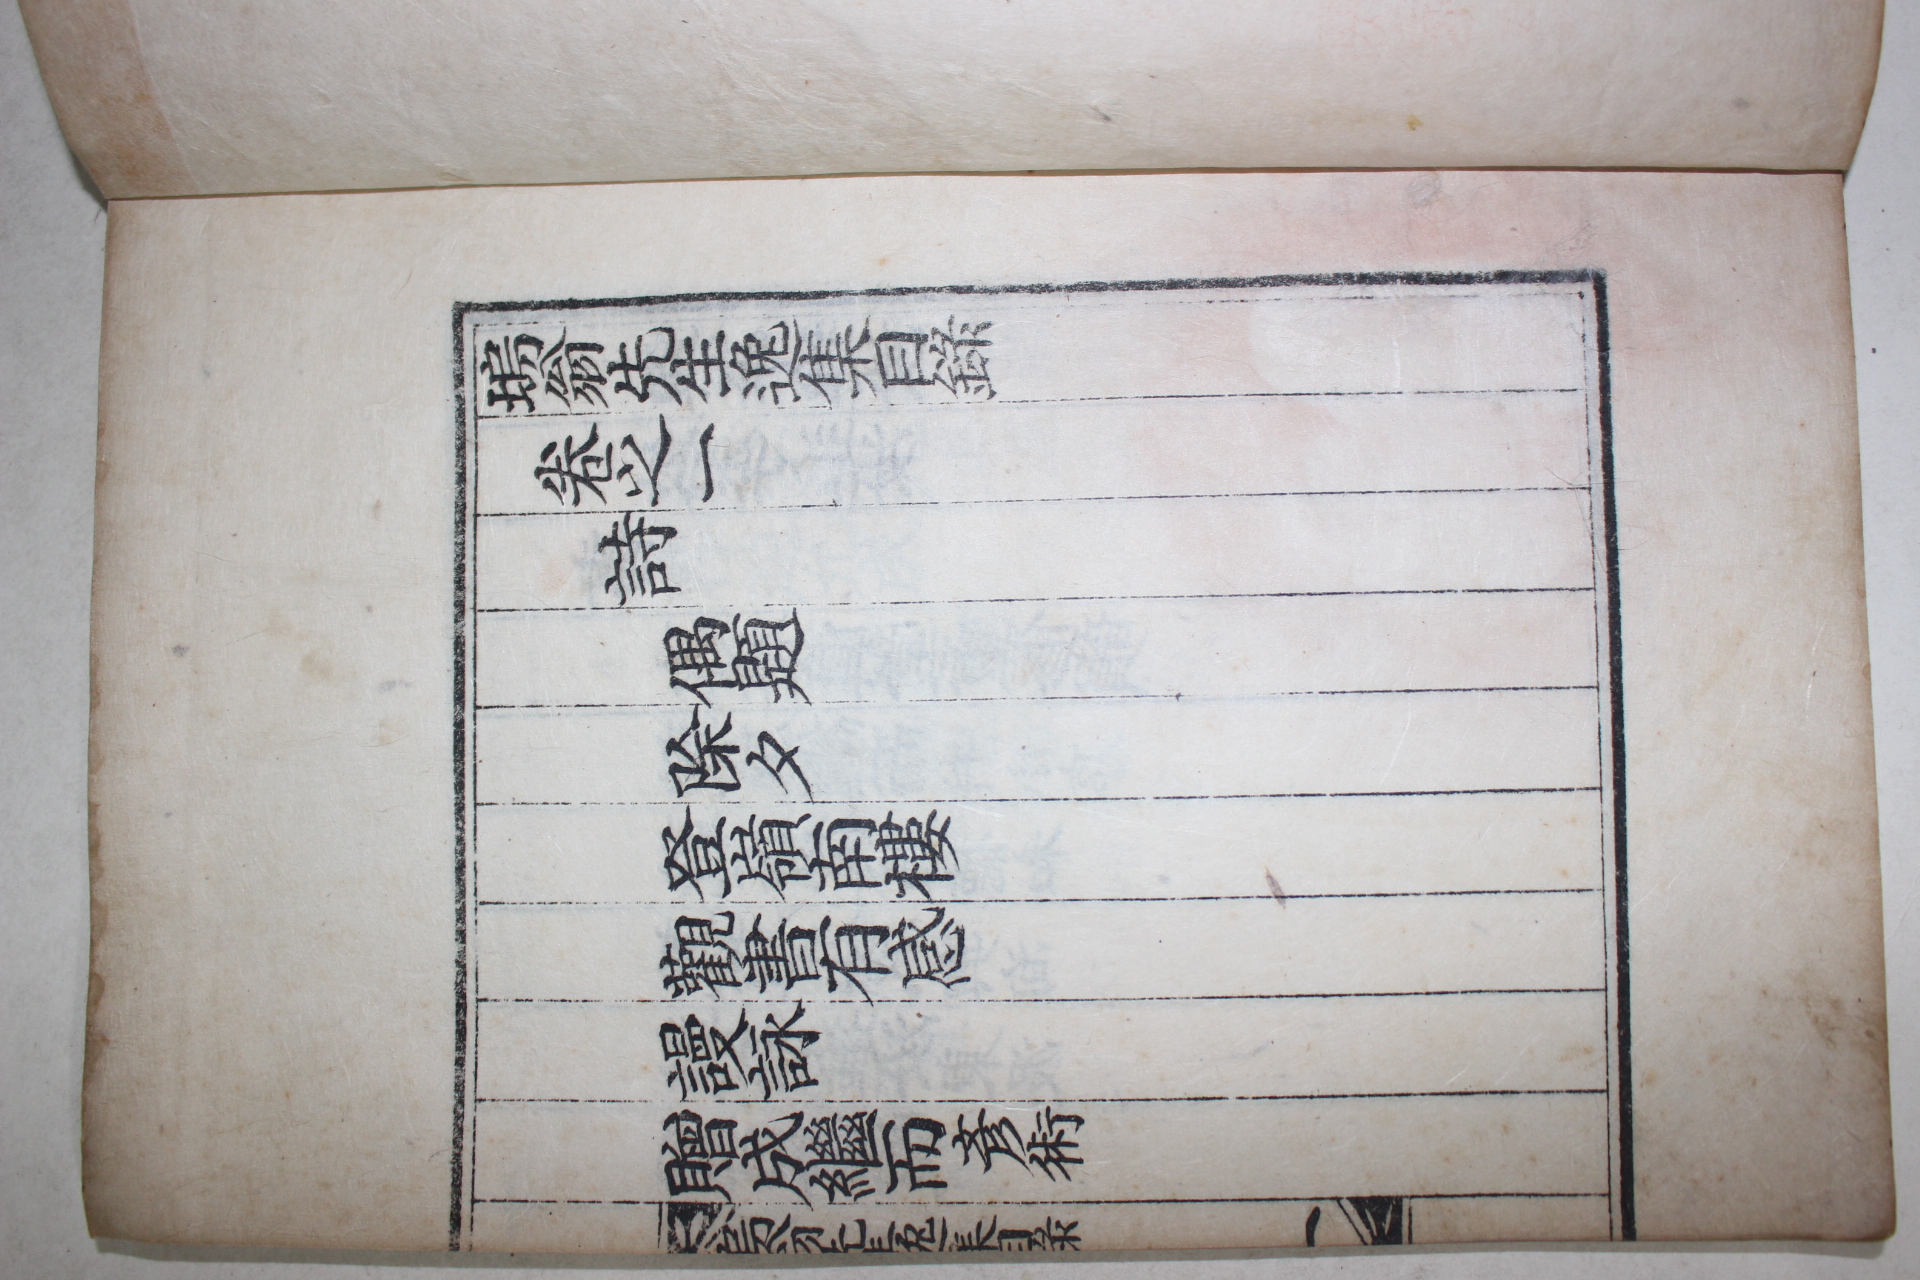 塢翁先生逸集目錄
卷之一
詩
偶題
除夕
登嶺南樓
觀書有感
謾詠
贈成繼而彦術
先生逸集目錄